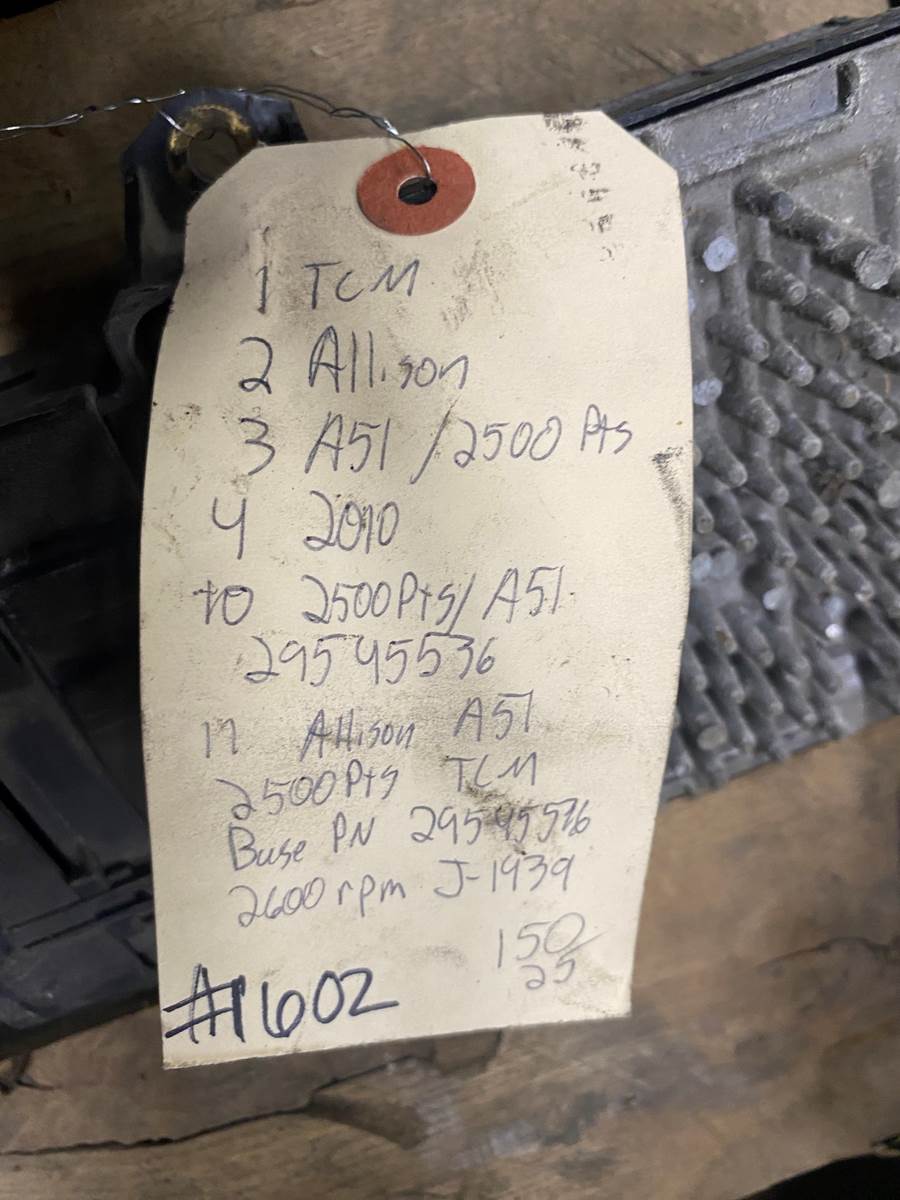 1 TCM
2 Allison
3 A51 /2500 Pts
4 2010
10 2500Pts/ A51
29545536
17 Allison A51
2500Pts TCM
Base PN 29545536
2600rpm J-1939
150/
25
#1602